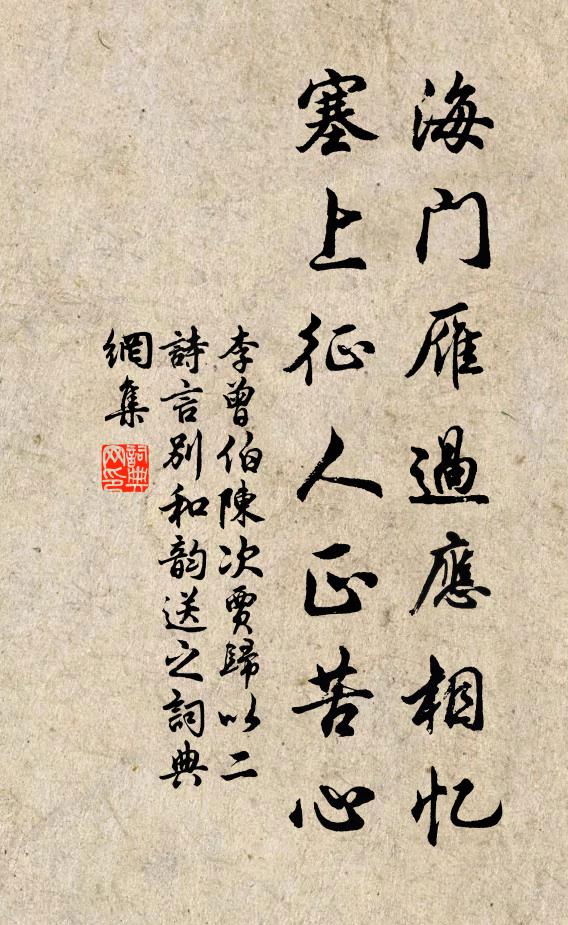 海门雁過應相忆
塞上征人正苦心
李曾伯陳次賈歸以二
詩言别和韵送之詞典
網集
詞典
网印